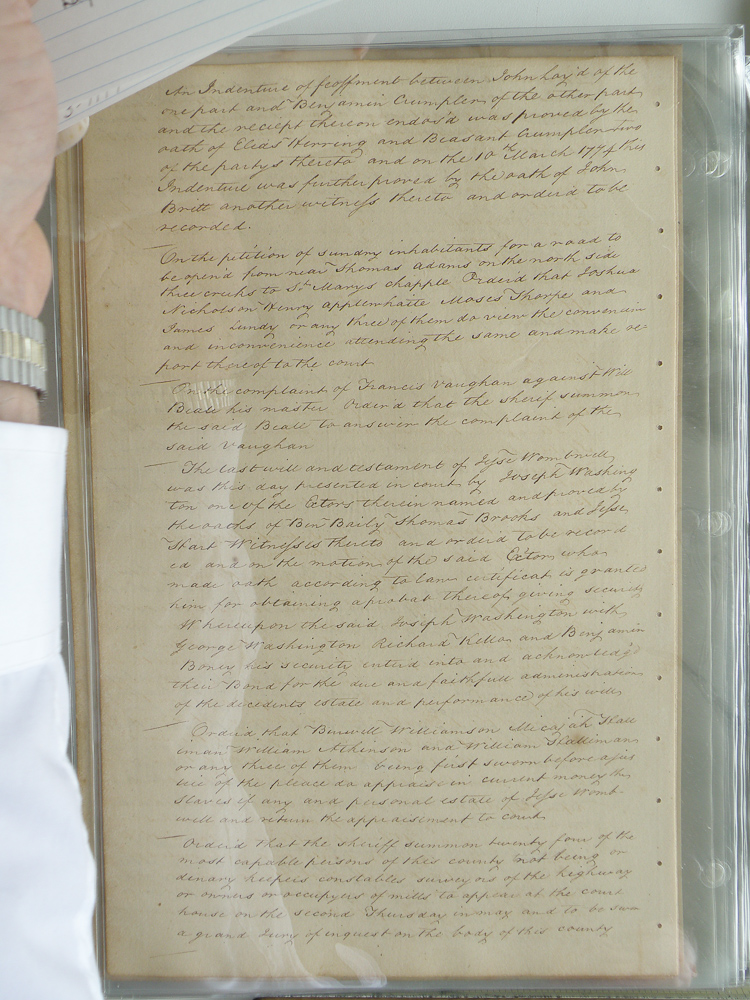 An Indenture of feoffment between John Lay'd of the
one part and Benjamin Crumpler of the other part
and the reciept thereon endos'd was proved by the
oath of Elias Herring and Beasant Crumpler two
of the partys thereto and on the 10th March 1774 this
Indenture was further proved by the oath of John
Britt another witness thereto and orderd to be
recorded.
On the petition of sundry inhabitants for a road to
be open'd from near Thomas Adams on the north side
three creeks to St Marys chapple Orderd that Joshua
Nicholson Henry applewhaite Moses Thorpe and
James Lundy or any three of them do view the convenien
and inconvenience attending the same and make re
port thereof to the court
On the complaint of Francis Vaughan against Will
Beale his master Order'd that the sherif summon
the said Beale to answer the complaint of the
said Vaughan
The last will and testament of Jesse Wombwell
was this day presented in court by Joseph Washing
ton one of the Ectors therein named and proved by
the oaths of Ben Baily Thomas Brooks and Jesse
Hart Witnesses thereto and orderd to be record
ed and on the motion of the said Ector who
made oath according to law certificat is granted
him for obtaining a probat thereof giving security
Whereupon the said Joseph Washington with
George Washington Richard Kello and Benjamin
Boney his security enterd into and acknowledg'd
their Bond for the due and faithfull administration
of the decedents estate and performance of his will
Orderd that Burwell Williamson Micajah Hall
iman William Atkinson and William Halliman
or any three of them being first sworn before a jus
tice of the pleace do appraise in current money the
slaves if any and personal estate of Jesse Womb-
well and return the appraisement to court
Orderd that the sheriff summon twenty four of the
most capable persons of this county not being or
dinary keepers constables surveyors of the highway
or owners or occupyers of mills to appear at the court
house on the second Thursday in may and to be swo
a grand Jury of inquest on the body of this county